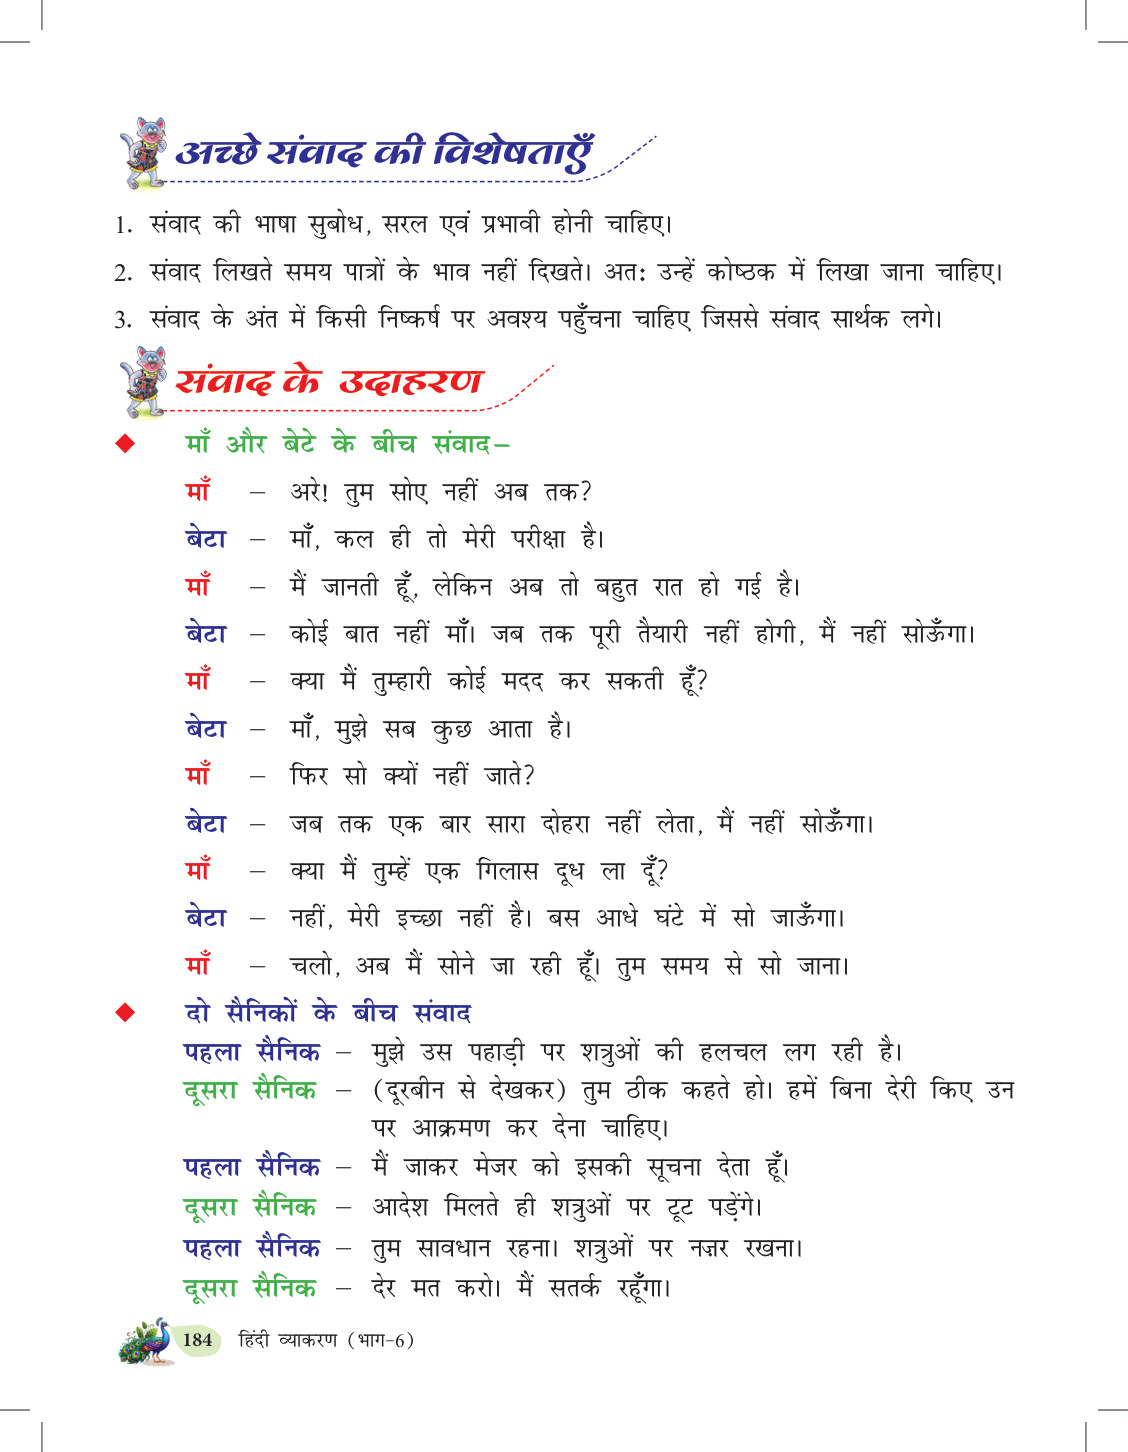 अच्छे संवाद की विशेषताएँ
1. संवाद की भाषा सुबोध, सरल एवं प्रभावी होनी चाहिए।
2. संवाद लिखते समय पात्रों के भाव नहीं दिखते। अतः उन्हें कोष्ठक में लिखा जाना चाहिए।
3. संवाद के अंत में किसी निष्कर्ष पर अवश्य पहुँचना चाहिए जिससे संवाद सार्थक लगे।
संवाद के उदाहरण
◆ माँ और बेटे के बीच संवाद–
माँ – अरे! तुम सोए नहीं अब तक?
बेटा – माँ, कल ही तो मेरी परीक्षा है।
माँ – मैं जानती हूँ, लेकिन अब तो बहुत रात हो गई है।
बेटा – कोई बात नहीं माँ। जब तक पूरी तैयारी नहीं होगी, मैं नहीं सोऊँगा।
माँ – क्या मैं तुम्हारी कोई मदद कर सकती हूँ?
बेटा – माँ, मुझे सब कुछ आता है।
माँ – फिर सो क्यों नहीं जाते?
बेटा – जब तक एक बार सारा दोहरा नहीं लेता, मैं नहीं सोऊँगा।
माँ – क्या मैं तुम्हें एक गिलास दूध ला दूँ?
बेटा – नहीं, मेरी इच्छा नहीं है। बस आधे घंटे में सो जाऊँगा।
माँ – चलो, अब मैं सोने जा रही हूँ। तुम समय से सो जाना।
◆ दो सैनिकों के बीच संवाद
पहला सैनिक – मुझे उस पहाड़ी पर शत्रुओं की हलचल लग रही है।
दूसरा सैनिक – (दूरबीन से देखकर) तुम ठीक कहते हो। हमें बिना देरी किए उन
पर आक्रमण कर देना चाहिए।
पहला सैनिक – मैं जाकर मेजर को इसकी सूचना देता हूँ।
दूसरा सैनिक – आदेश मिलते ही शत्रुओं पर टूट पड़ेंगे।
पहला सैनिक – तुम सावधान रहना। शत्रुओं पर नज़र रखना।
दूसरा सैनिक – देर मत करो। मैं सतर्क रहूँगा।
184 हिंदी व्याकरण (भाग–6)